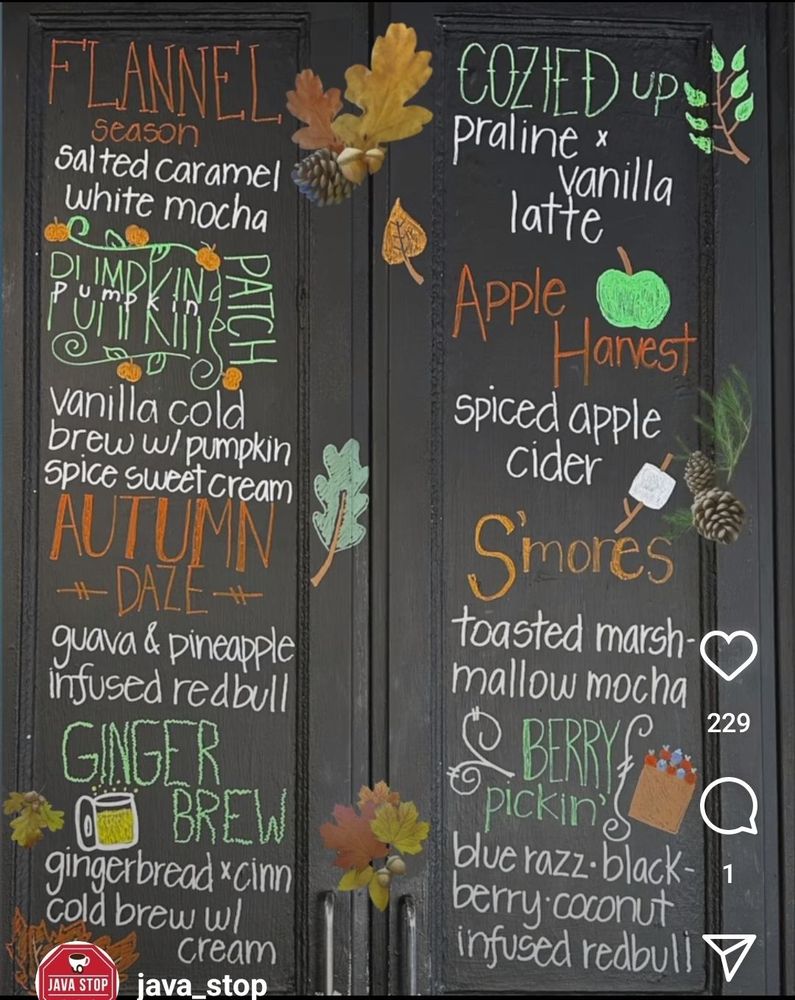 FLANNEL
season
salted caramel
white mocha
PUMPKIN
Pumpkin
PATCH
vanilla cold
brew w/ pumpkin
spice sweet cream
AUTUMN
DAZE
guava & pineapple
infused redbull
GINGER
BREW
gingerbread x cinn
cold brew w/
cream
COZIED UP
praline x
vanilla
latte
Apple
Harvest
spiced apple
cider
S'mores
toasted marsh-
mallow mocha
BERRY
pickin'
blue razz·black-
berry·coconut
infused redbull
229
1
JAVA STOP
java_stop